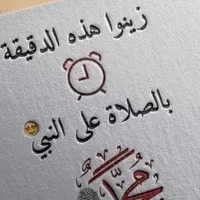 زينوا هذه الدقيقة
بالصلاة على النبي
محمد